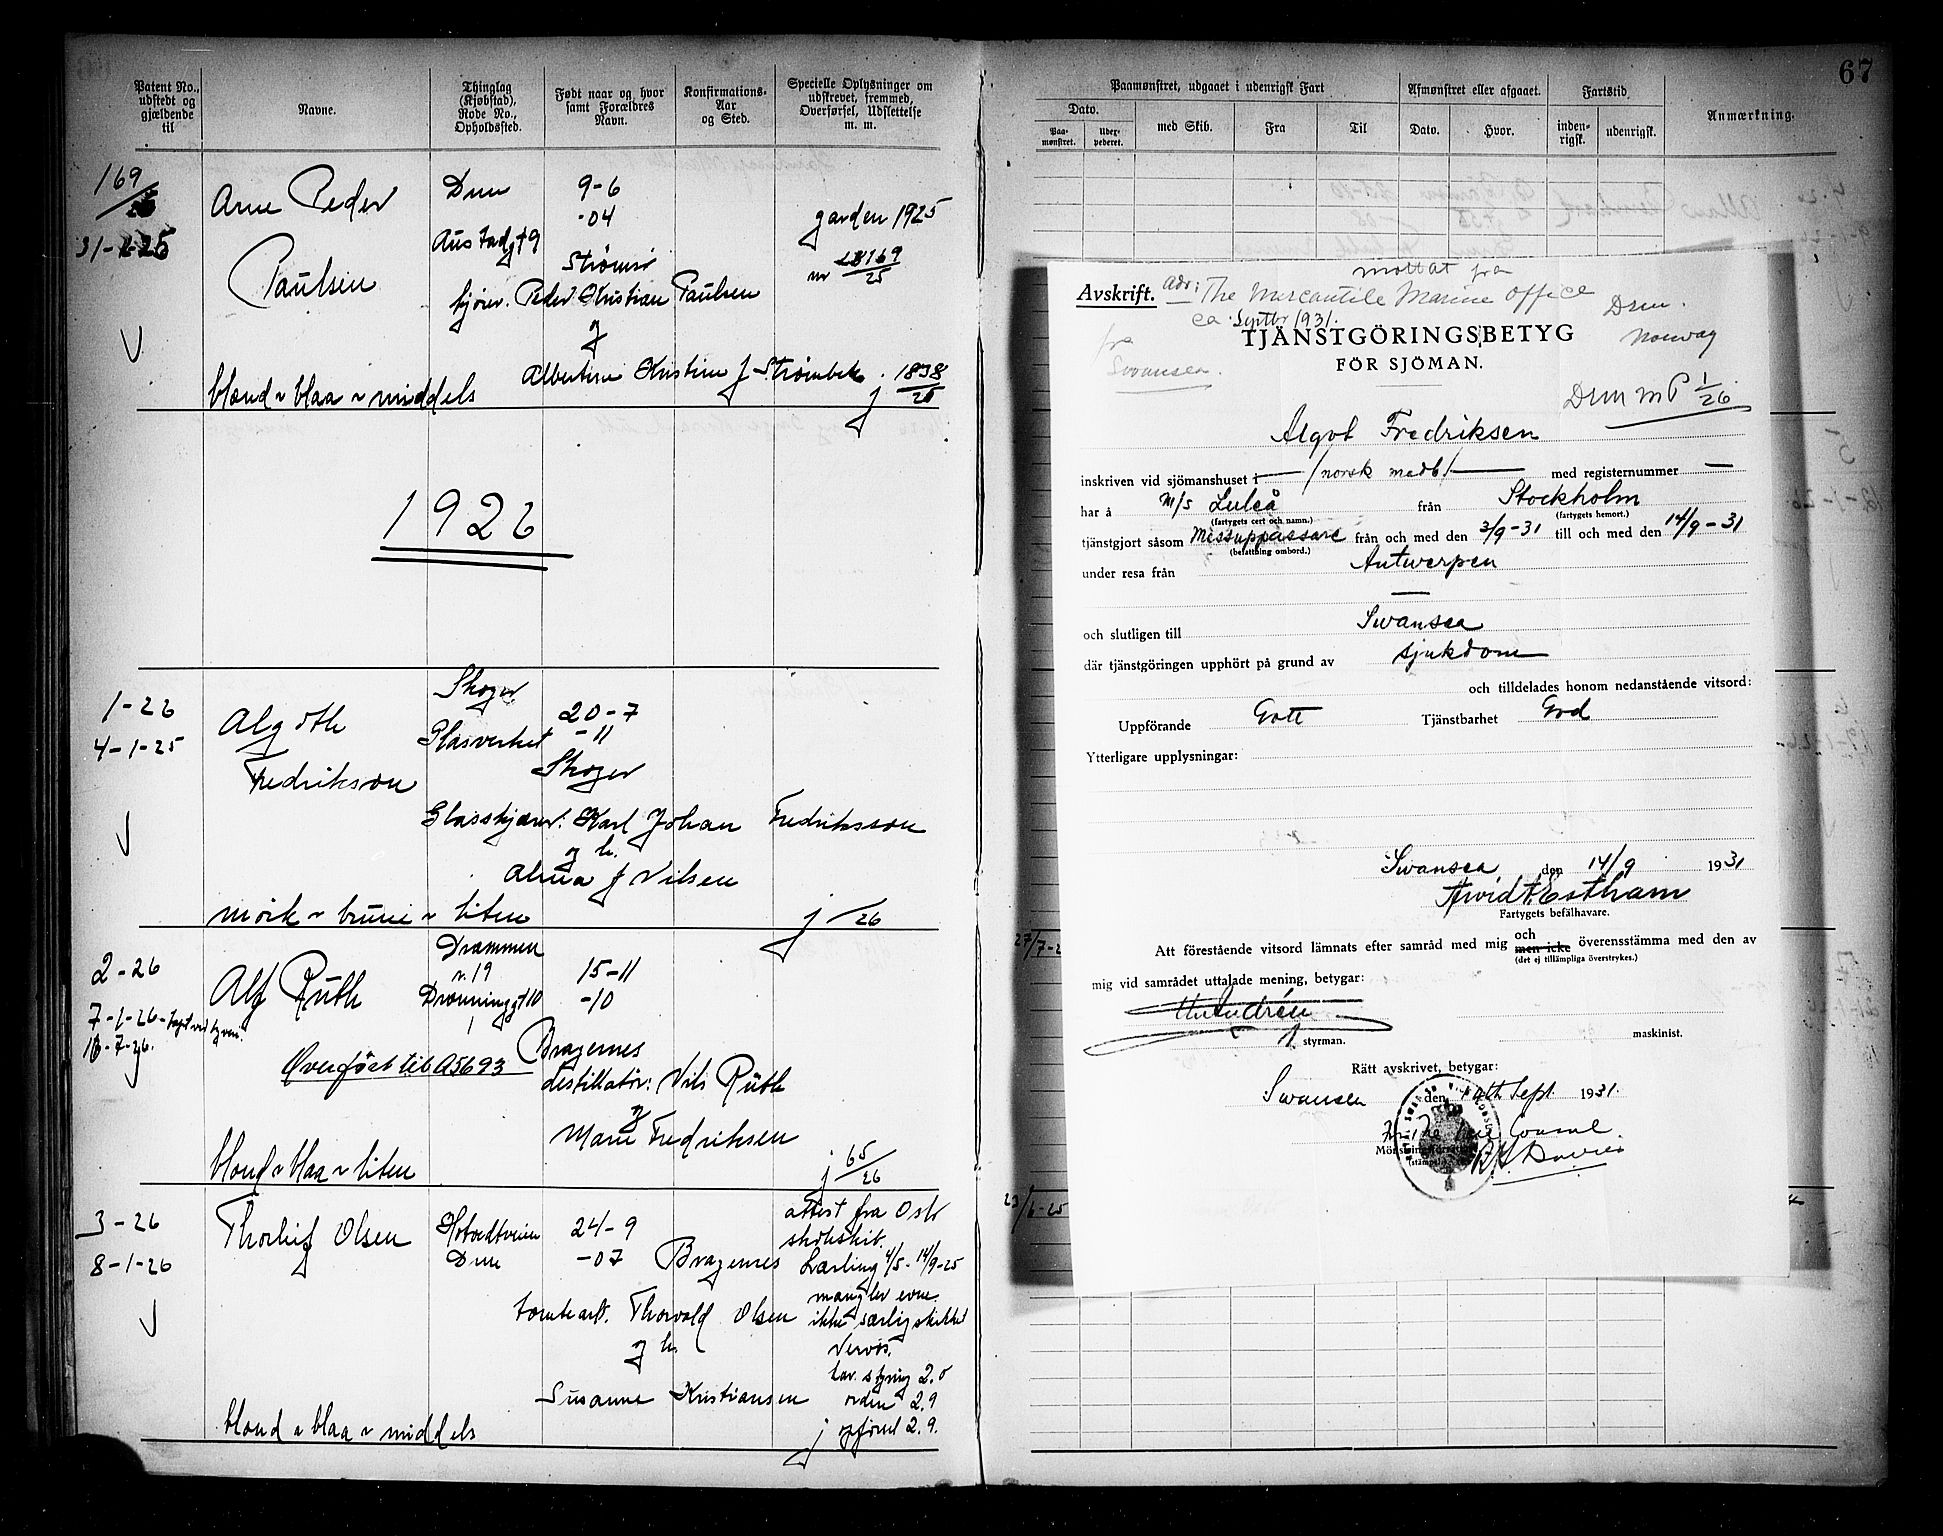 Patent No., udstedt og gjældende til
Navne.
Thinglag (Kjøbstad), Rode No., Opholdssted.
Født naar og hvor samt Forældres Navn.
Konfirmations-Aar og Sted.
Specielle Oplysninger om udskrevet, fremmed, Overførsel, Udslettelse m. m.
169
31-
Arne Peder
Paulsen
Drm
Austadgt 9
9-6
-04
Strømsø
kjører. Peder Christian Paulsen
og
Albertine Kristine f Strømbek
garden 1925
nr 169/25
blond ~ blaa ~ middels
j 1838/25
1926
1-26
4-1-25
Algoth
Fredrikson
Skoger
Glasverket
20-7
-11
Skoger
Glasskjærer: Karl Johan Fredriksson
og h.
Alma f Nilsen
mørk ~ brune ~ liten
j /26
2-26
7-1-26
16-7-26.
Alf Ruth
Drammen
r. 19
Dronninggt 10
15-11
-10
Overført til A5693
Bragernes
destillatør: Nils Ruth
og
Marie Fredriksen
blond ~ blaa ~ liten
j 65/26
3-26
8-1-26
Thorleif Olsen
Hotvedtveien
Drm
24-9
-07
Bragernes
tomtearb. Thorvald Olsen
og h.
Susanne Kristiansen
attest fra Oslo
skoleskib.
Lærling 4/5 - 14/9-25
mangler evne.
ikke særlig skikket
nervøs.
kar. styring 2.0
orden 2.9
j opførsel 2.9.
blond ~ blaa ~ middels
67
Paamønstret, udgaaet i udenrigsk Fart
Afmønstret eller afgaaet.
Fartstid.
Anmærkning.
Dato.
Paa-mønstret.
Uder-pederet.
med Skib.
Fra
Til
Dato.
Hvor.
inden-rigsk.
udenrigsk.
mottat fra
Avskrift.
Adr: The Mercantile Marine Office
ca Septbr 1931.
Drm.
Norway
fra
Swansea.
TJÄNSTGÖRINGSBETYG
FÖR SJÖMAN.
Drm m P 1/26
Algot Fredriksen
inskriven vid sjömanshuset i — /norsk medb/ — med registernummer —
har å M/S Luleå från Stockholm
(fartygets cert och namn.) (fartygets hemort.)
tjänstgjort såsom Mässuppassare från och med den 3/9-31 till och med den 14/9-31
(befattning ombord.)
under resa från Antwerpen
—
och slutligen till Swansea
där tjänstgöringen upphört på grund av sjukdom
och tilldelades honom nedanstående vitsord:
Uppförande Gott Tjänstbarhet God
Ytterligare upplysningar:
Swansea, den 14/9 1931
Arvid A Estham
Fartygets befälhavare.
Att förestående vitsord lämnats efter samråd med mig och men icke överensstämma med den av
(det ej tillämpliga överstrykes.)
mig vid samrådet uttalade mening, betygar:
styrman.
maskinist.
Rätt avskrivet, betygar:
Swansea den 14th Sept. 1931.
For the Vice Consul
27/7-2
23/6-25